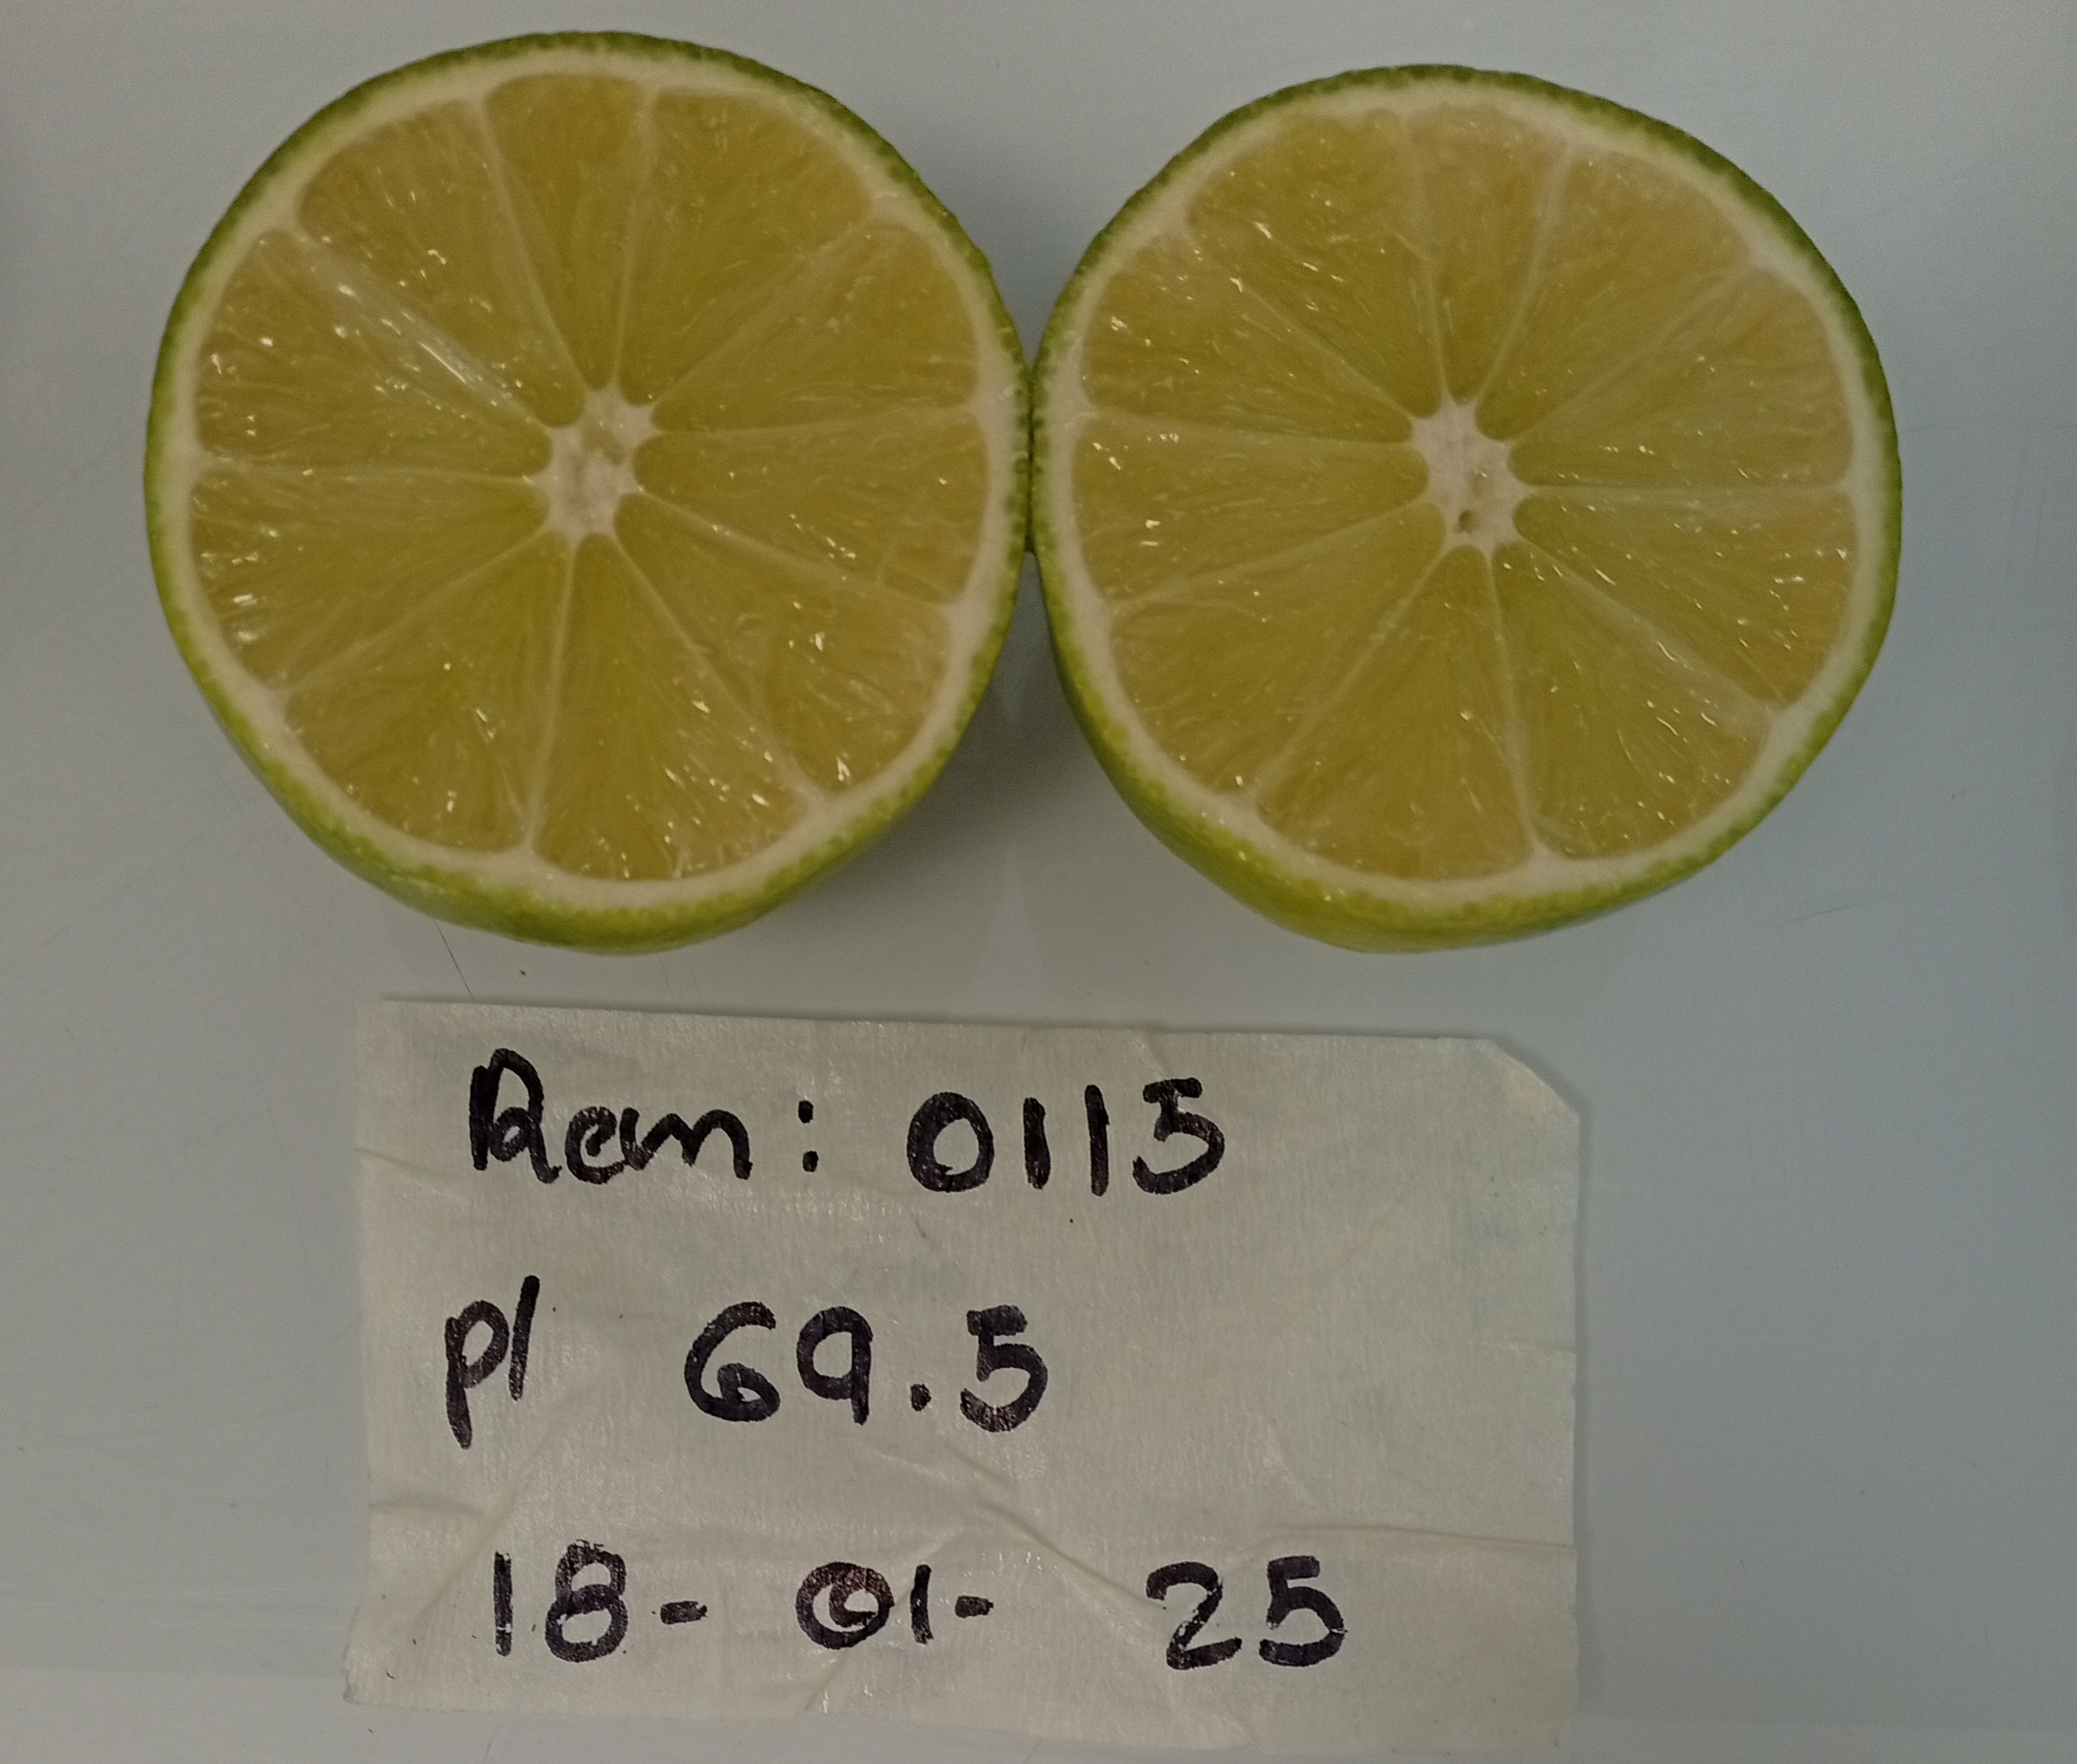 Rem: 0115
pl 69.5
18-01-25